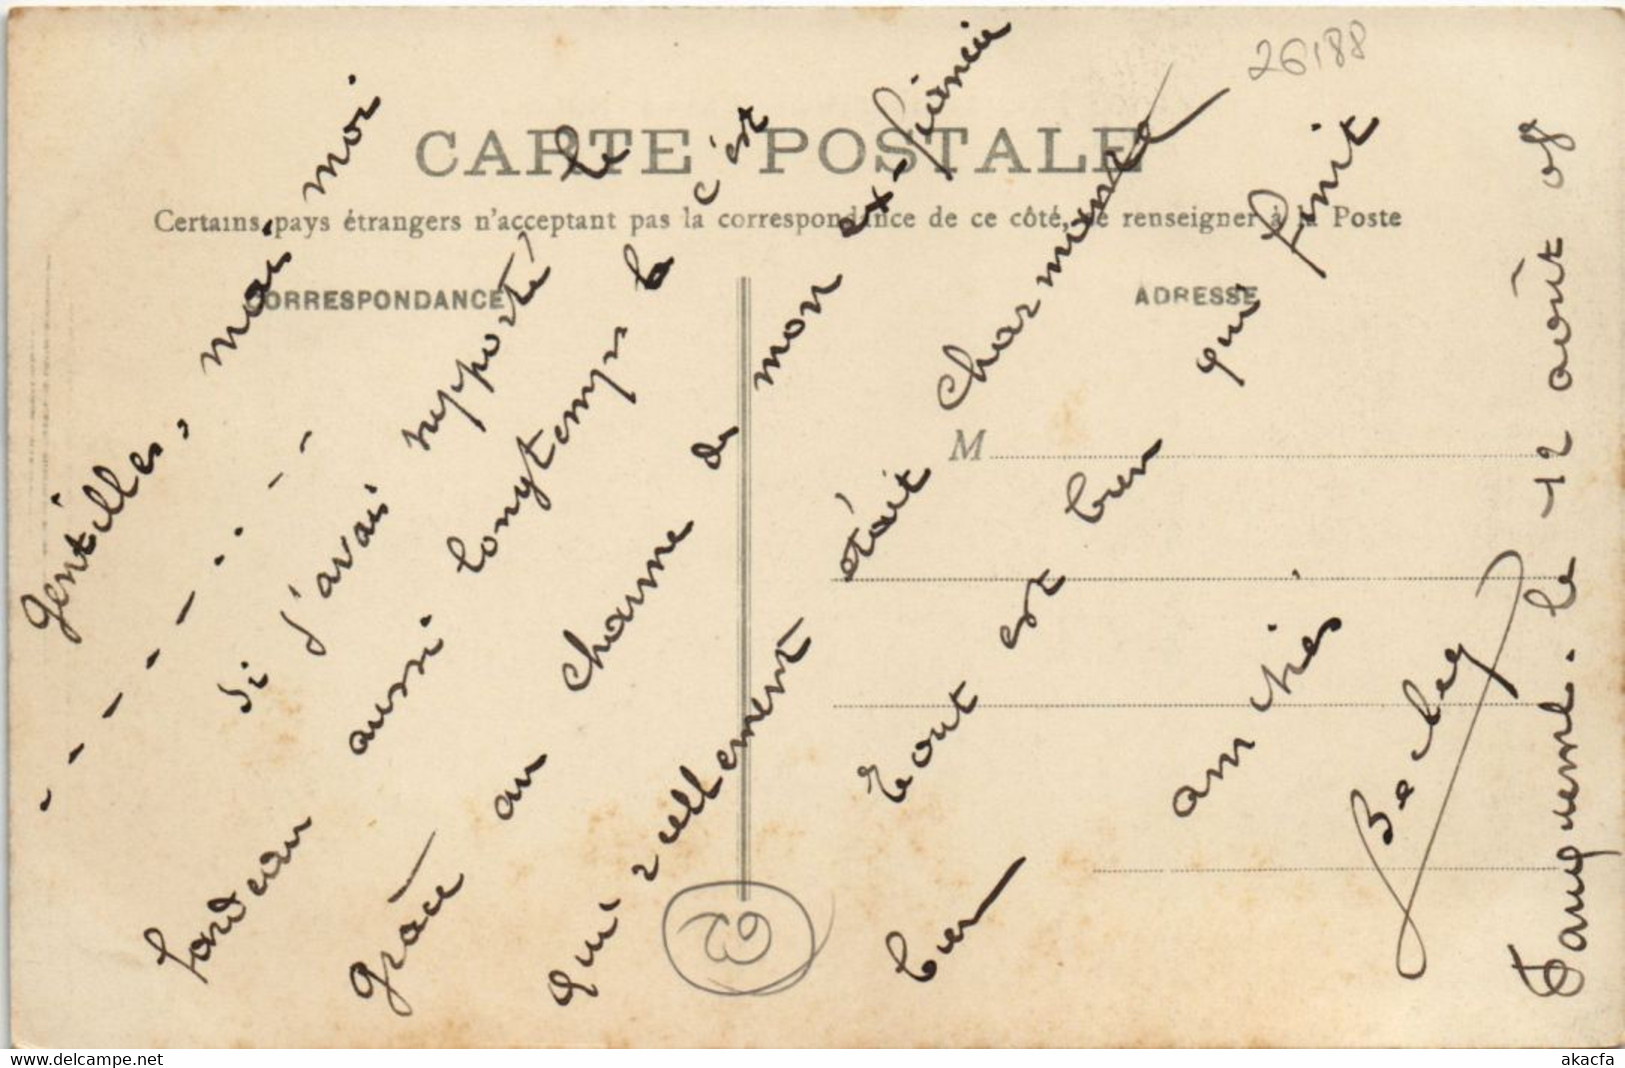 26188
CARTE POSTALE
Certains pays étrangers n'acceptent pas la correspondance de ce côté, se renseigner à la Poste
CORRESPONDANCE
ADRESSE
M
Gentilles, mais moi
si j'avais supporté le
fardeau aussi longtemps là c'est
grâce au charme de mon ex-fiancée
qui réellement était charmante
Tout est bien qui finit
bien
amitiés
62
le 12 août 08
delcampe.net
akacfa